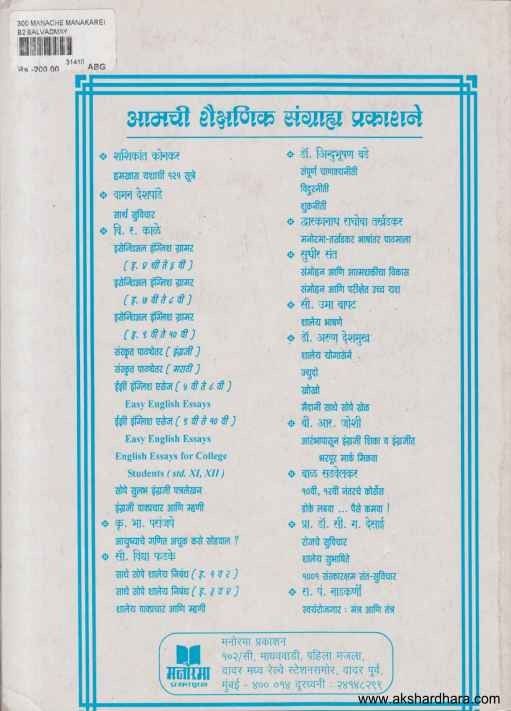 300 MANACHE MANAKAREI
B2 BALVADMAY
31410
-200.00 ABG
आमची शैक्षणिक संग्राह्य प्रकाशने
❖ शशिकांत कोनकर
हमखास यशाची १२१ सूत्रे
❖ वामन देशपांडे
सार्थ सुविचार
❖ वि. र. काळे
इसेन्शिअल इंग्लिश ग्रामर
( इ. ५ वी ते ६ वी )
इसेन्शिअल इंग्लिश ग्रामर
( इ. ७ वी ते ८ वी )
इसेन्शिअल इंग्लिश ग्रामर
( इ. ९ वी ते १० वी )
संस्कृत पाठ्येतर ( इंग्रजी )
संस्कृत पाठ्येतर ( मराठी )
ईझी इंग्लिश एसेज ( ५ वी ते ८ वी )
Easy English Essays
ईझी इंग्लिश एसेज ( ९ वी ते १० वी )
Easy English Essays
English Essays for College
Students ( std. XI, XII )
सोपे सुलभ इंग्रजी पत्रलेखन
इंग्रजी वाक्प्रचार आणि म्हणी
❖ कृ. भा. परांजपे
आयुष्याचे गणित अचूक कसे सोडवाल ?
❖ सौ. विद्या फडके
साधे सोपे शालेय निबंध ( इ. १ व २ )
साधे सोपे शालेय निबंध ( इ. ३ व ४ )
शालेय वाक्प्रचार आणि म्हणी
❖ डॉ. जिन्दुभूषण बडे
संपूर्ण चाणक्यनीती
विदुरनीती
शुक्रनीती
❖ द्वारकानाथ राघोबा तर्खडकर
मनोरमा-तर्खडकर भाषांतर पाठमाला
❖ सुधीर संत
संमोहन आणि आत्मशक्तीचा विकास
संमोहन आणि परीक्षेत उच्च यश
❖ सौ. उमा बापट
शालेय भाषणे
❖ डॉ. अरुण देशमुख
शालेय योगासने
ज्युदो
खोखो
मैदानी साधे सोपे खेळ
❖ बी. आर. जोशी
आरंभापासून इंग्रजी शिका व इंग्रजीत
भरपूर मार्क मिळवा
❖ बाळ सडवेलकर
१०वी, १२वी नंतरचे कोर्सेस
डोके लढवा ... पैसे कमवा !
❖ प्रा. डॉ. सी. म. देसाई
रोजचे सुविचार
शालेय सुभाषिते
१००१ संस्कारक्षम संत-सुविचार
❖ रा. पं. नाडकर्णी
स्वयंरोजगार : मंत्र आणि तंत्र
मनोरमा
प्रकाशन
मनोरमा प्रकाशन
१०२/सी, माधववाडी, पहिला मजला,
दादर मध्य रेल्वे स्टेशनसमोर, दादर पूर्व,
मुंबई - ४०० ०१४ दूरध्वनी : २४१४८२९९
www.akshardhara.com